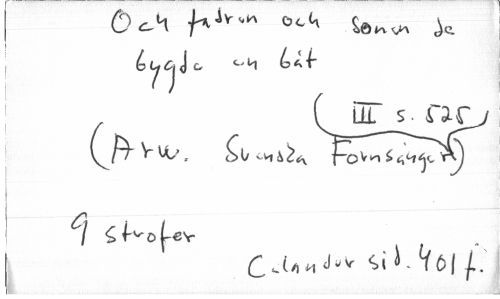 Och fadren och sonen de
bygde en båt
(III s. 525)
(Arw. Svenska Fornsånger)
9 strofer
Celander sid. 401 f.